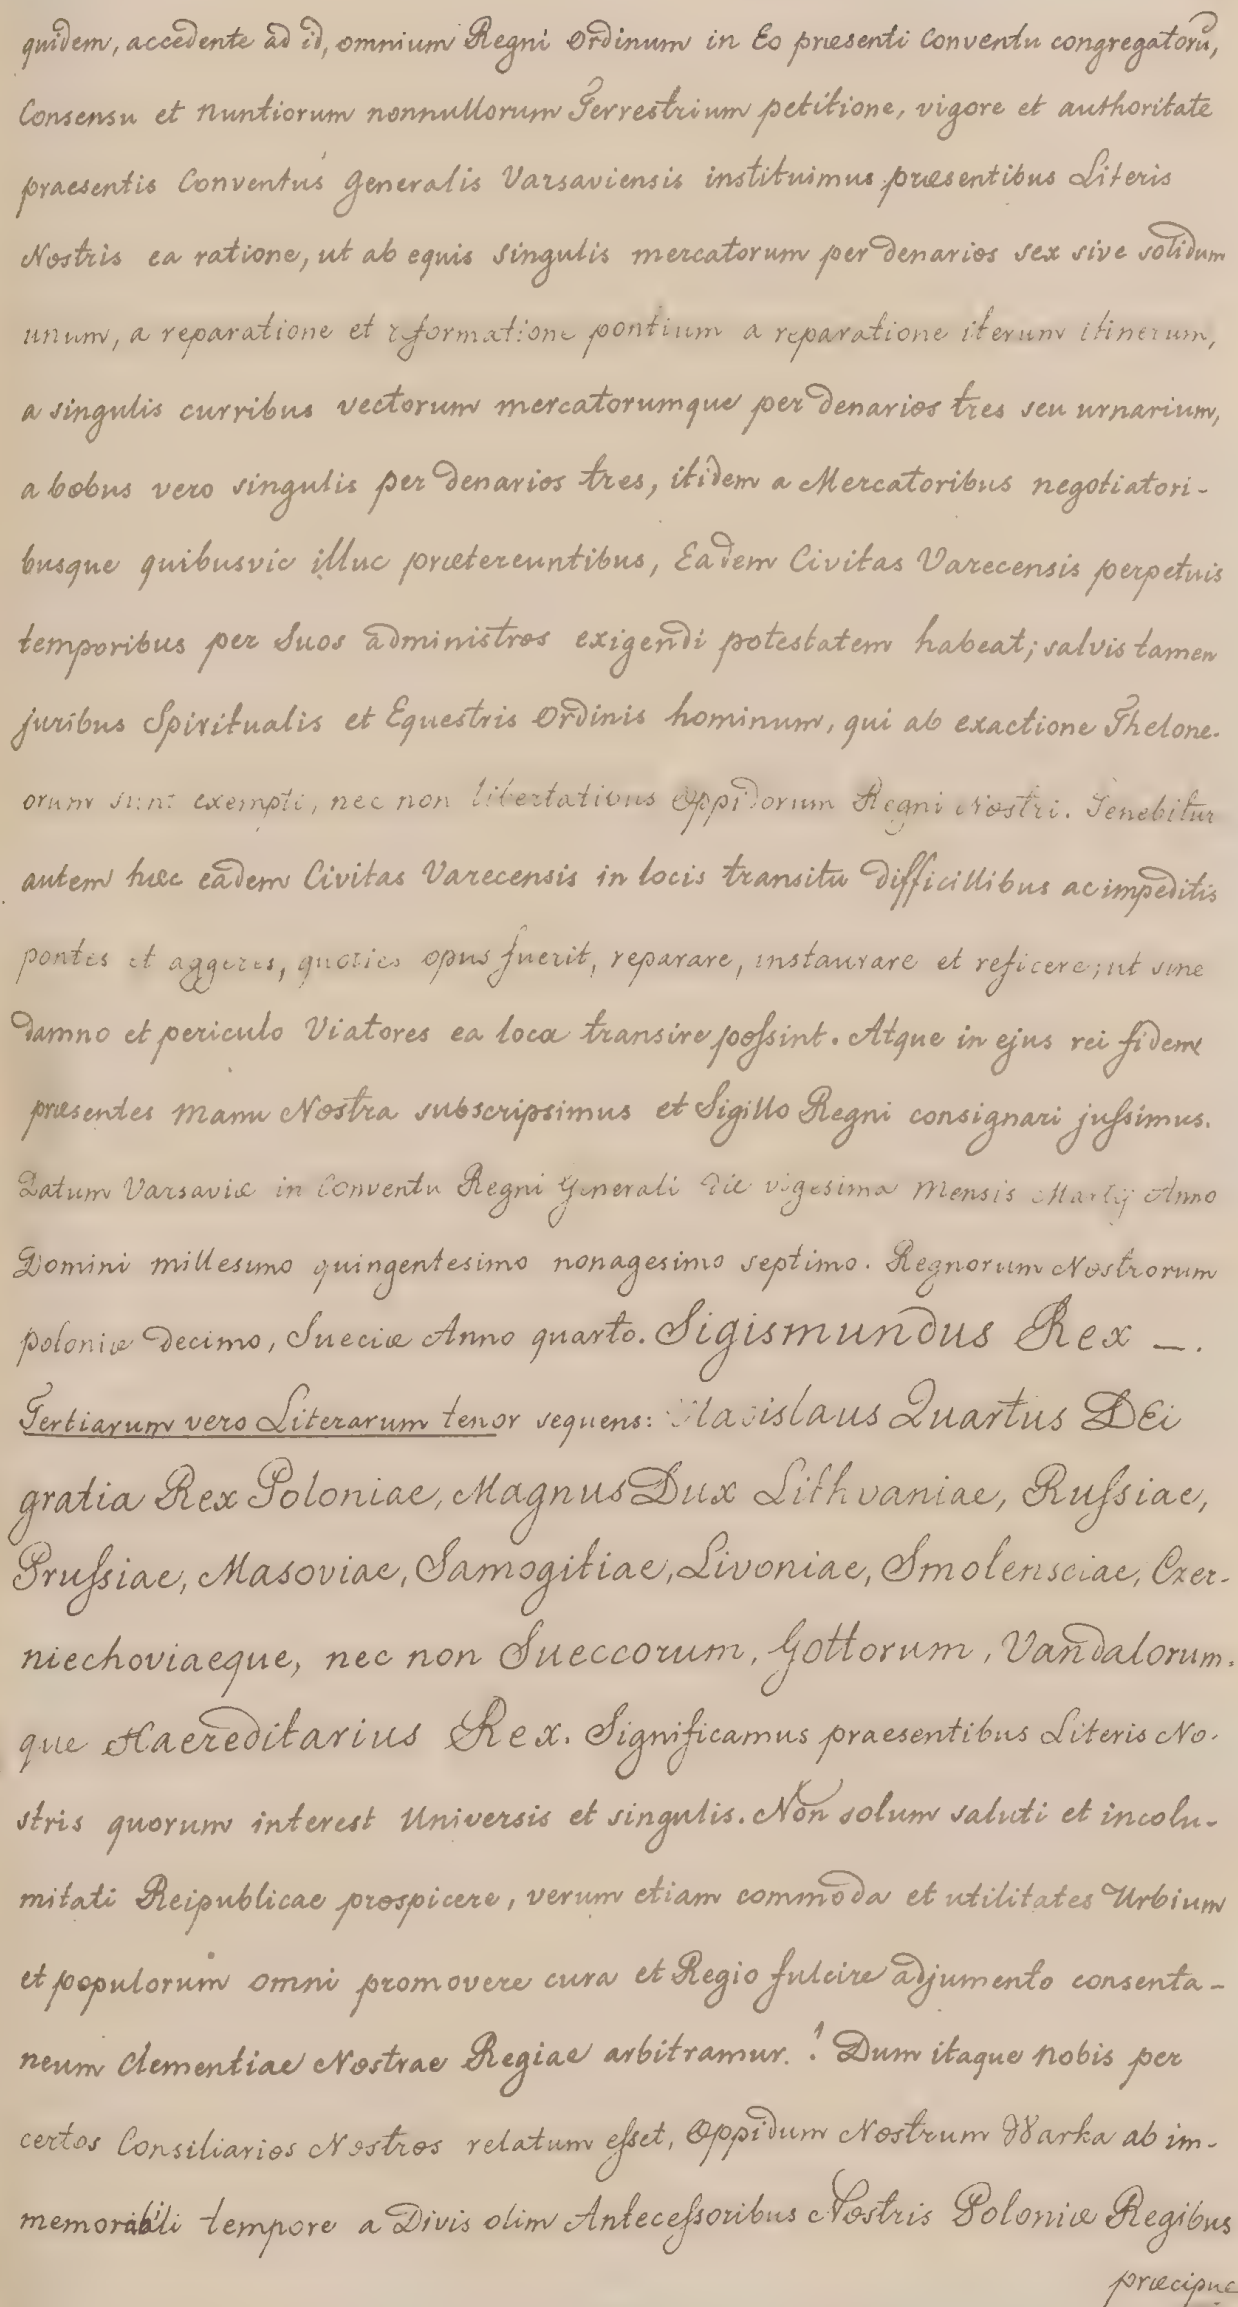 quidem, accedente ad id, omnium Regni Ordinum in Eo præsenti Conventu congregatorũ,
Consensu et Nuntiorum nonnullorum Terrestrium petitione, vigore et authoritate
praesentis Conventus Generalis Varsaviensis instituimus præsentibus Literis
Nostris ea ratione, ut ab equis singulis mercatorum per denarios sex sive solidum
unum, a reparatione et reformatione pontium a reparatione iterum itinerum,
a singulis curribus vectorum mercatorumque per denarios tres seu urnarium,
a bobus vero singulis per denarios tres, itidem a Mercatoribus negotiatori-
busque quibusvic illuc prætereuntibus, Eadem Civitas Varecensis perpetuis
temporibus per Suos administros exigendi potestatem habeat; salvis tamen
juribus Spiritualis et Equestris Ordinis hominum, qui ab exactione Thelone-
orum sunt exempti, nec non libertatibus Oppidorum Regni Nostri. Tenebitur
autem hæc eadem Civitas Varecensis in locis transitu difficillibus ac impeditis
pontes et aggeres, quoties opus fuerit, reparare, instaurare et reficere; ut sine
damno et periculo Viatores ea loca transire poſsint. Atque in ejus rei fidem
præsentes Manu Nostra subscripsimus et Sigillo Regni consignari juſsimus.
Datum Varsaviæ in Conventu Regni Generali die vigesima Mensis Martij Anno
Domini millesimo quingentesimo nonagesimo septimo. Regnorum Nostrorum
Poloniæ decimo, Sueciæ Anno quarto. Sigismundus Rex —.
Tertiarum vero Literarum tenor sequens: Vladislaus Quartus DEi
gratia Rex Poloniae, Magnus Dux Lithvaniae, Ruſsiae,
Pruſsiae, Masoviae, Samogitiae, Livoniae, Smolensciae, Czer-
niechoviaeque, nec non Sueccorum, Gottorum, Vandalorum-
que Haereditarius Rex. Significamus praesentibus Literis No-
stris quorum interest Universis et singulis. Non solum saluti et incolu-
mitati Reipublicae prospicere, verum etiam commoda et utilitates Urbium
et populorum omni promovere cura et Regio fulcire adjumento consenta-
neum Clementiae Nostrae Regiae arbitramur. ! Dum itaque nobis per
certos Consiliarios Nostros relatum eſset, Oppidum Nostrum Warka ab im-
memorabili tempore a Divis olim Anteceſsoribus Nostris Poloniæ Regibus
præcipue